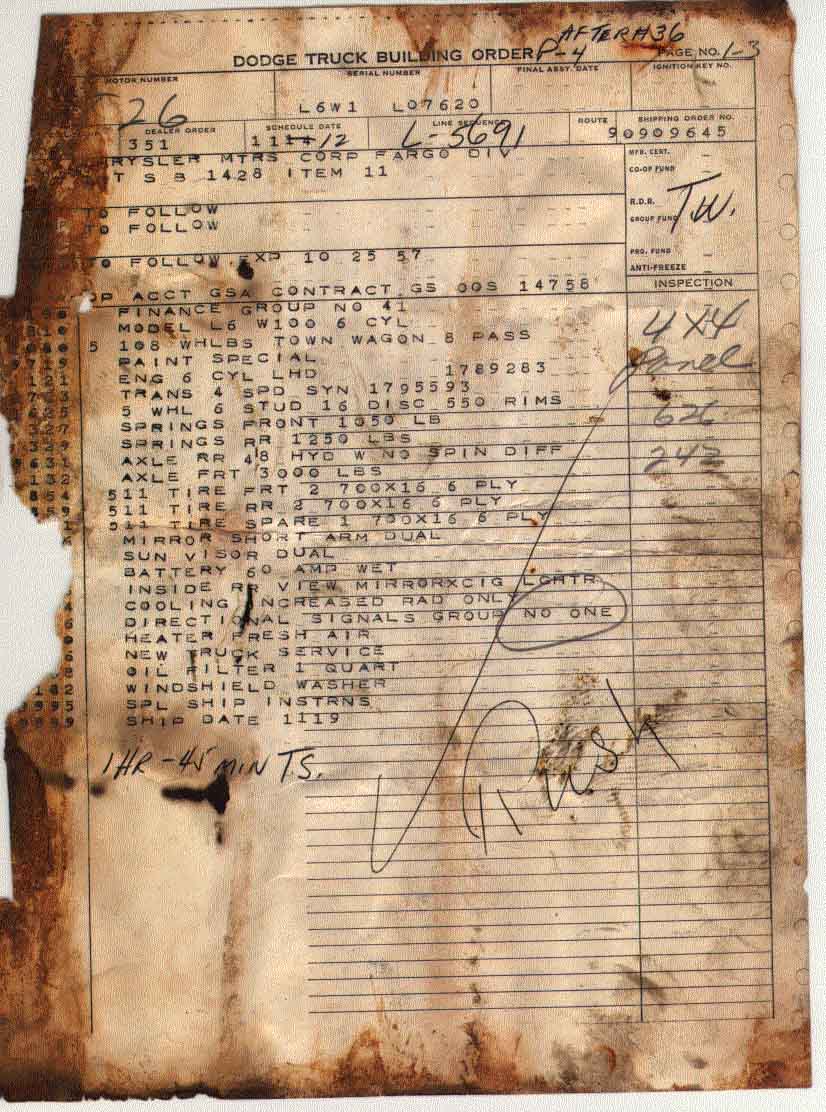 AFTER H36
DODGE TRUCK BUILDING ORDER P-4 PAGE NO. 1-3
MOTOR NUMBER SERIAL NUMBER FINAL ASSY. DATE IGNITION KEY NO.
26 L6W1 L07620
DEALER ORDER SCHEDULE DATE LINE SEQUENCE ROUTE SHIPPING ORDER NO.
351 11 12 L-5691 90909645
RYSLER MTRS CORP FARGO DIV MFR. CERT.
T S B 1428 ITEM 11 CO-OP FUND
R.D.R.
TO FOLLOW GROUP FUND T.W.
TO FOLLOW
PRO. FUND
TO FOLLOW EXP 10 25 57 ANTI-FREEZE
INSPECTION
OP ACCT GSA CONTRACT GS 00S 14758
FINANCE GROUP NO 41
MODEL L6 W100 6 CYL 4X4
5 108 WHLBS TOWN WAGON 8 PASS Panel
9719 PAINT SPECIAL
121 ENG 6 CYL LHD 1789283
TRANS 4 SPD SYN 1795593
625 5 WHL 6 STUD 16 DISC 550 RIMS 626
327 SPRINGS FRONT 1050 LB
329 SPRINGS RR 1250 LBS
631 AXLE RR 48 HYD W NO SPIN DIFF 242
132 AXLE FRT 3000 LBS
854 511 TIRE FRT 2 700X16 6 PLY
511 TIRE RR 2 700X16 6 PLY
511 TIRE SPARE 1 700X16 6 PLY
MIRROR SHORT ARM DUAL
SUN VISOR DUAL
BATTERY 60 AMP WET
INSIDE RR VIEW MIRRORXCIG LGHTR
4 COOLING INCREASED RAD ONLY
6 DIRECTIONAL SIGNALS GROUP NO ONE
0 HEATER FRESH AIR
6 NEW TRUCK SERVICE
8 OIL FILTER 1 QUART
182 WINDSHIELD WASHER
9995 SPL SHIP INSTRNS
9999 SHIP DATE 1119
1 HR - 45 MIN T.S.
Rush